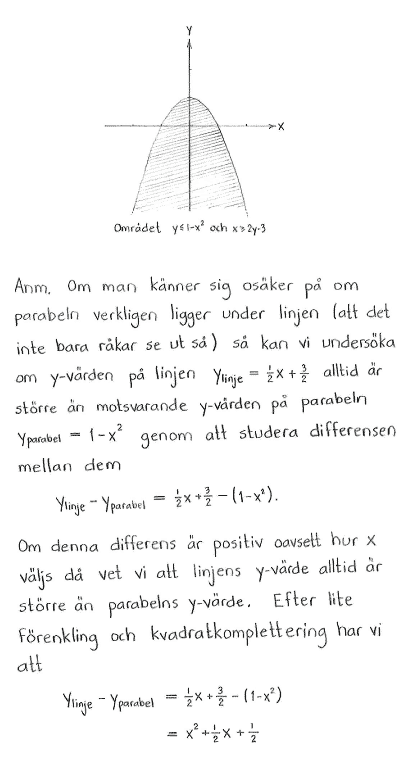 Y
X
Området y≤1-x² och x≥2y-3
Anm. Om man känner sig osäker på om
parabeln verkligen ligger under linjen (att det
inte bara råkar se ut så) så kan vi undersöka
om y-värden på linjen y_linje = ½x + 3/2 alltid är
större än motsvarande y-värden på parabeln
y_parabel = 1-x² genom att studera differensen
mellan dem
y_linje - y_parabel = ½x + 3/2 - (1-x²).
Om denna differens är positiv oavsett hur x
väljs då vet vi att linjens y-värde alltid är
större än parabelns y-värde. Efter lite
förenkling och kvadratkomplettering har vi
att
y_linje - y_parabel = ½x + 3/2 - (1-x²)
= x² + ½x + ½